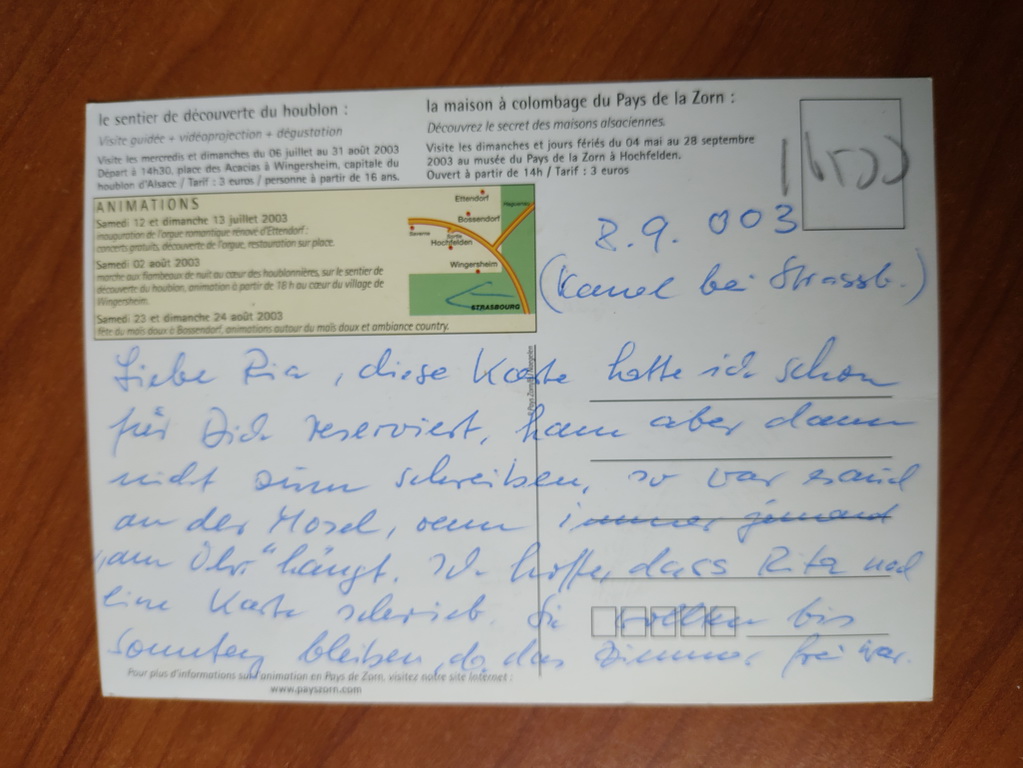 le sentier de découverte du houblon :
Visite guidée + vidéoprojection + dégustation
Visite les mercredis et dimanches du 06 juillet au 31 août 2003
Départ à 14h30, place des Acacias à Wingersheim, capitale du
houblon d'Alsace / Tarif : 3 euros / personne à partir de 16 ans.
la maison à colombage du Pays de la Zorn :
Découvrez le secret des maisons alsaciennes.
Visite les dimanches et jours fériés du 04 mai au 28 septembre
2003 au musée du Pays de la Zorn à Hochfelden.
Ouvert à partir de 14h / Tarif : 3 euros
ANIMATIONS
Samedi 12 et dimanche 13 juillet 2003
inauguration de l'orgue romantique rénové d'Ettendorf :
concerts gratuits, découverte de l'orgue, restauration sur place.
Samedi 02 août 2003
marche aux flambeaux de nuit au cœur des houblonnières, sur le sentier de
découverte du houblon, animation à partir de 18 h au cœur du village de
Wingersheim.
Samedi 23 et dimanche 24 août 2003
fête du maïs doux à Bossendorf, animations autour du maïs doux et ambiance country.
Ettendorf
Haguenau
Bossendorf
Saverne
Hochfelden
Wingersheim
STRASBOURG
8.9. 003
(Kanal bei Strassb.)
Liebe Ria, diese Karte hatte ich schon
für Dich reserviert, kam aber dann
nicht zum schreiben, so war es auch
an der Mosel, wenn immer jemand
"am Ohr" hängt. Ich hoffe, dass Rita mal
eine Karte schrieb. Sie wollten bis
Sonntag bleiben, da das Zimmer frei war.
Pour plus d'informations sur l'animation en Pays de Zorn, visitez notre site Internet :
www.payszorn.com